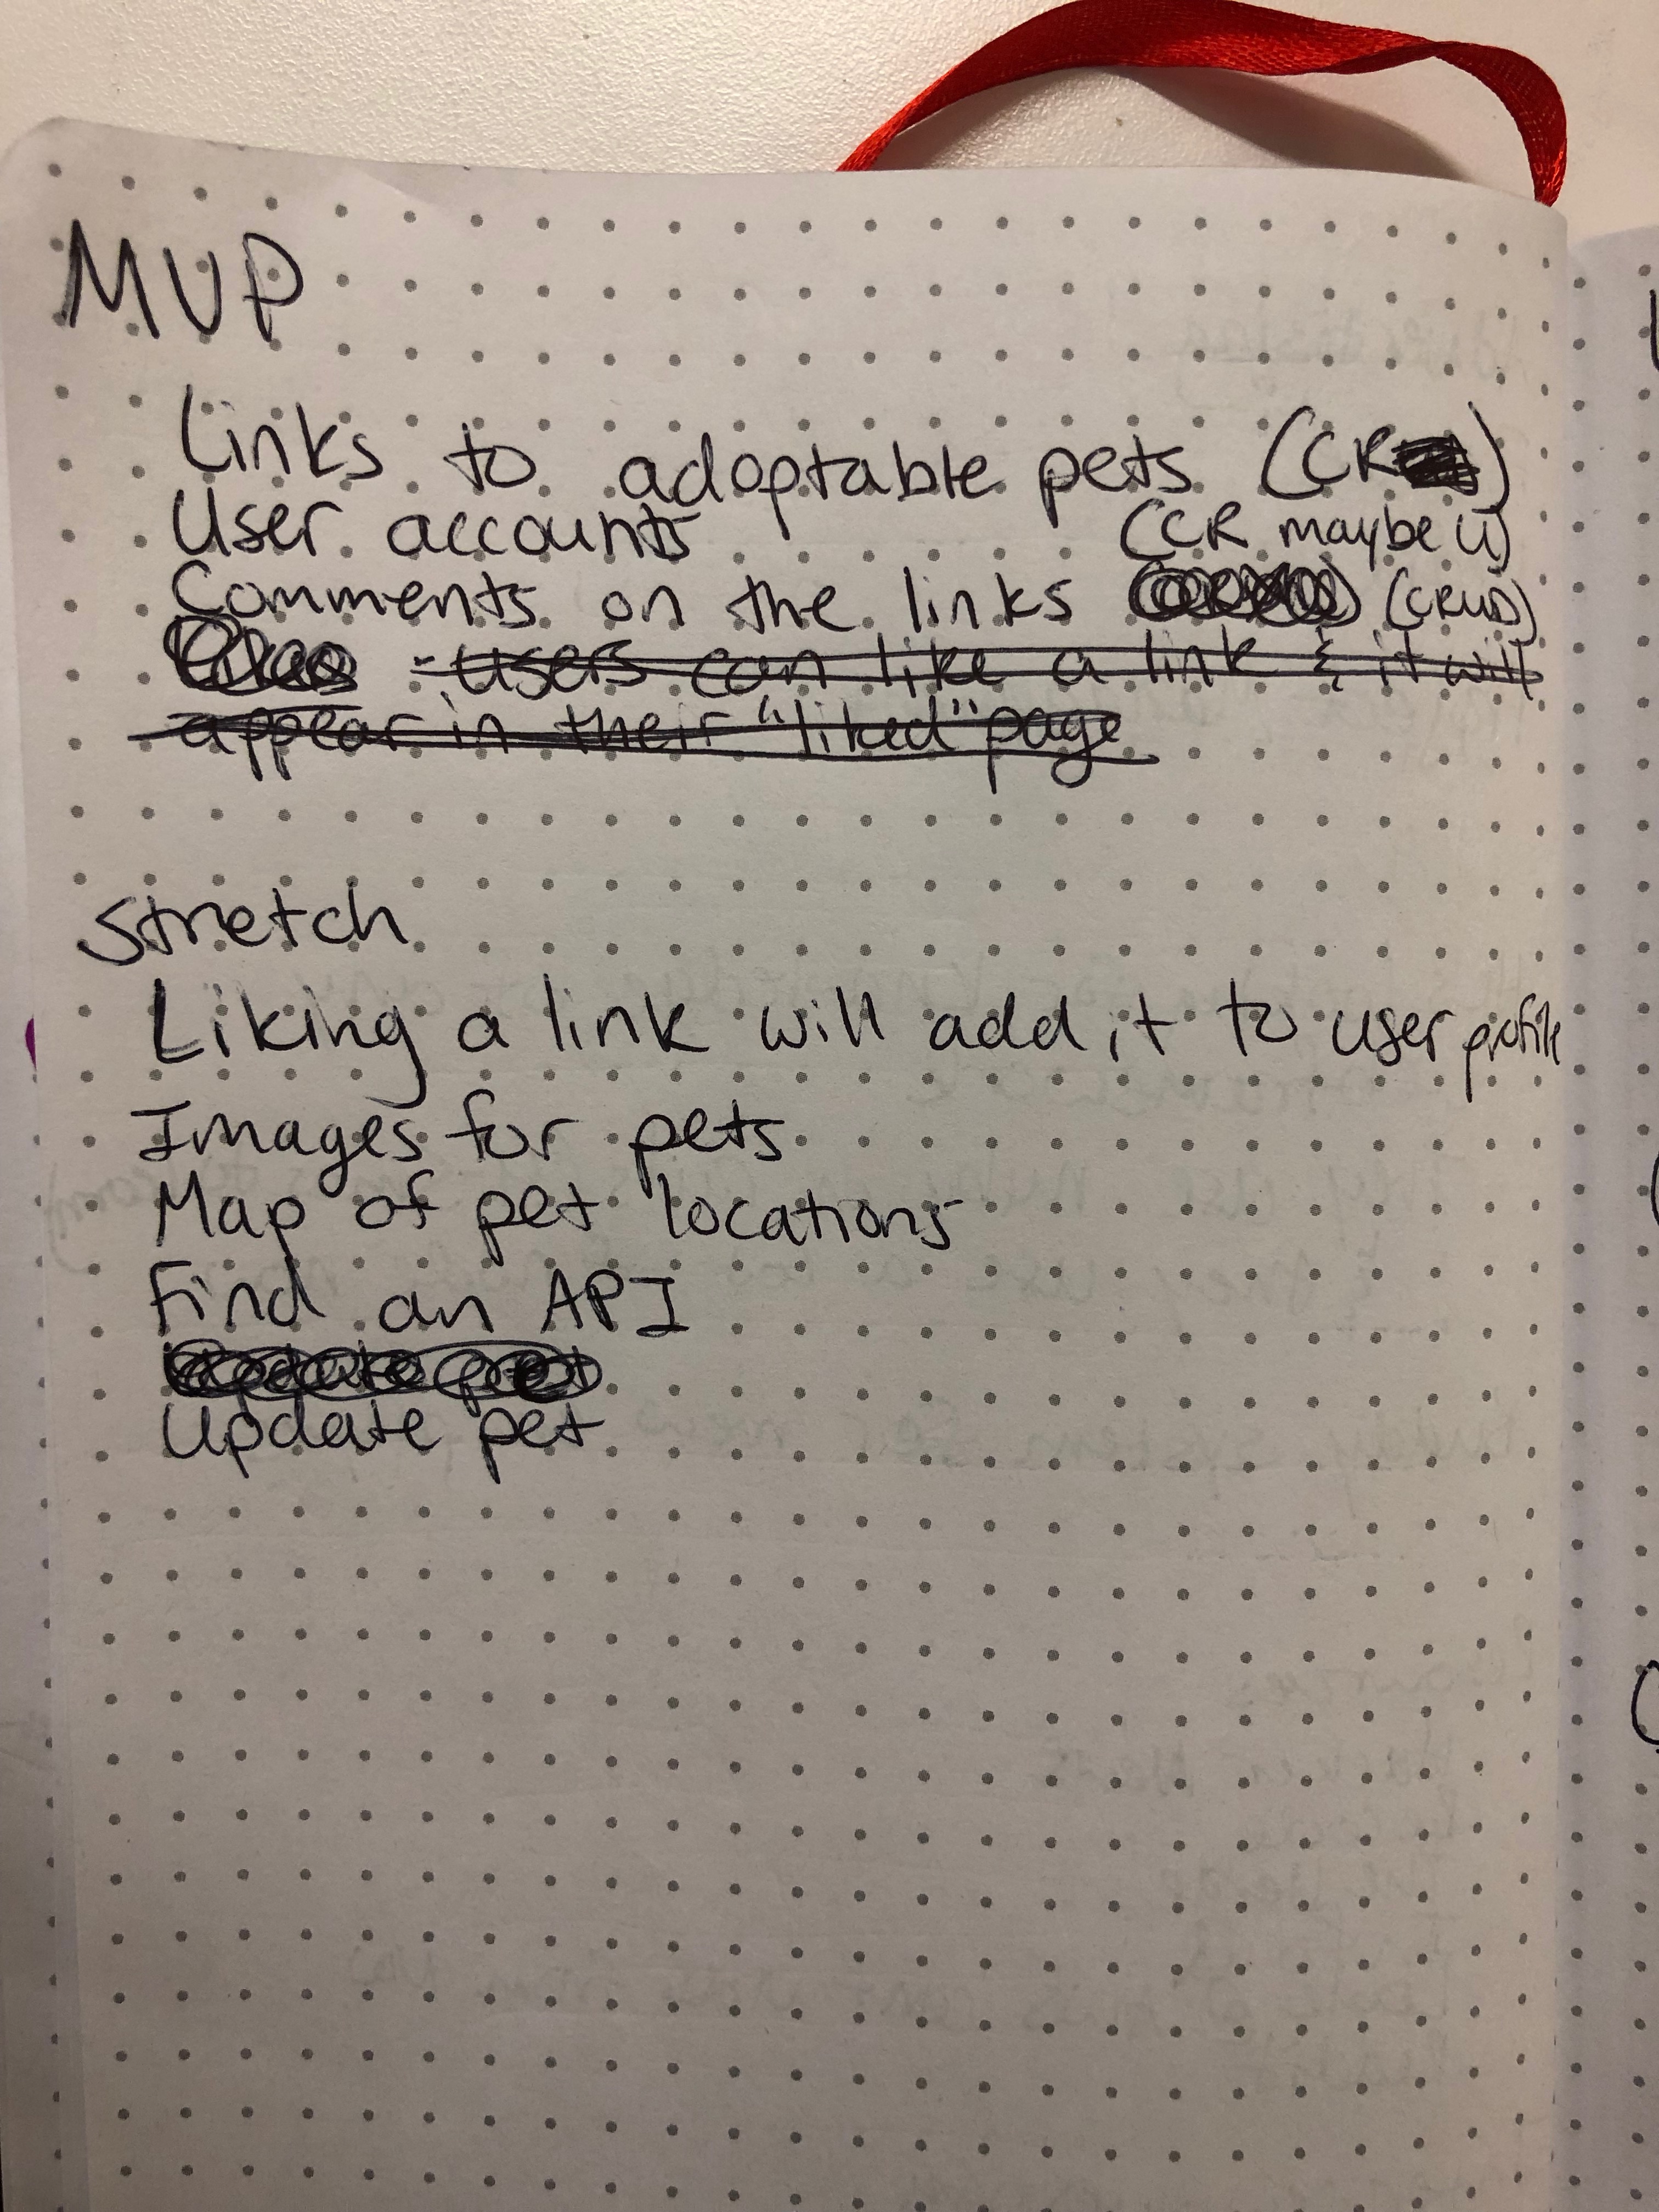 MVP
Links to adoptable pets (CR)
User accounts (CR maybe U)
Comments on the links (CRUD)
Likes - users can like a link & it will
appear in their "liked" page
Stretch
Liking a link will add it to user profile
Images for pets
Map of pet locations
Find an API
Update pet
Update pet